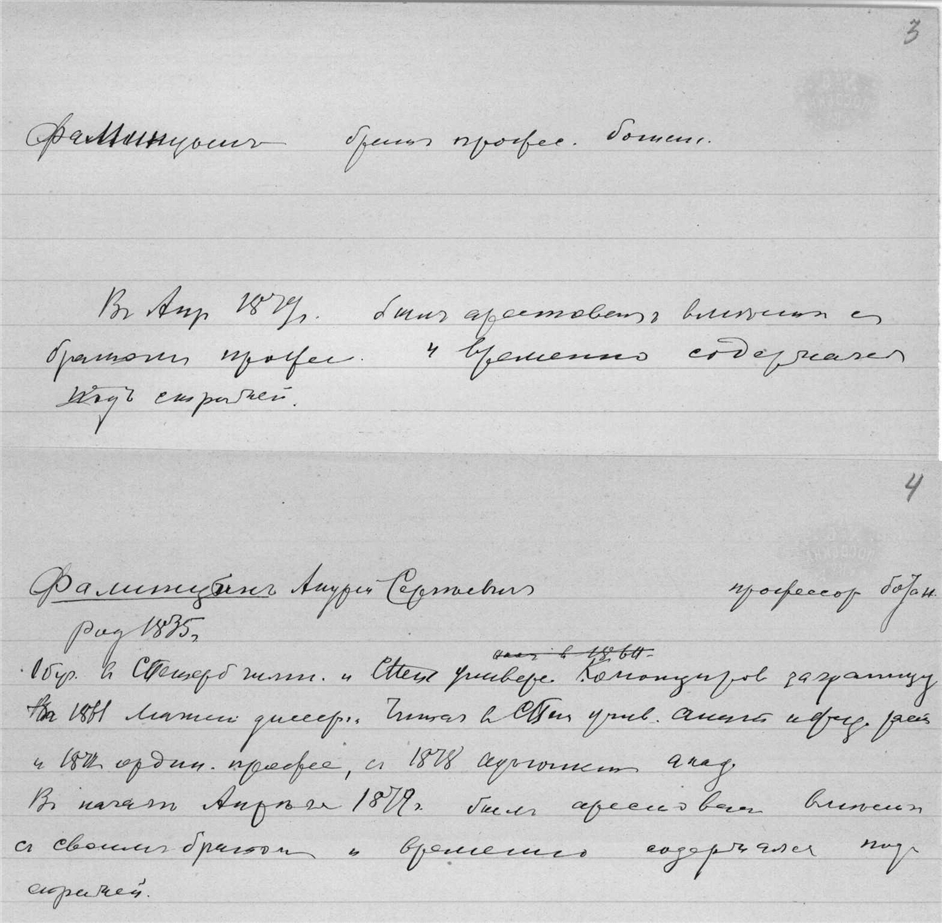 3
Фаминцынъ братъ профес. ботан.
Въ Апр 1879г. былъ арестованъ вместе съ
братомъ профес. и временно содержался
подъ стражей.
4
Фаминцынъ Андрей Сергеевичъ профессор ботан.
род 1835г.
Обуч. в СПетерб гимн. и СПет универс. Командиров заграницу
В 1861 магист диссер. Читал в СПт унив. анат и физ. раст
и ордин. профес, съ 1878 адъюнкт акад.
В начале Апреля 1879г. былъ арестован вместе
съ своимъ братом и временно содержался подъ
стражей.